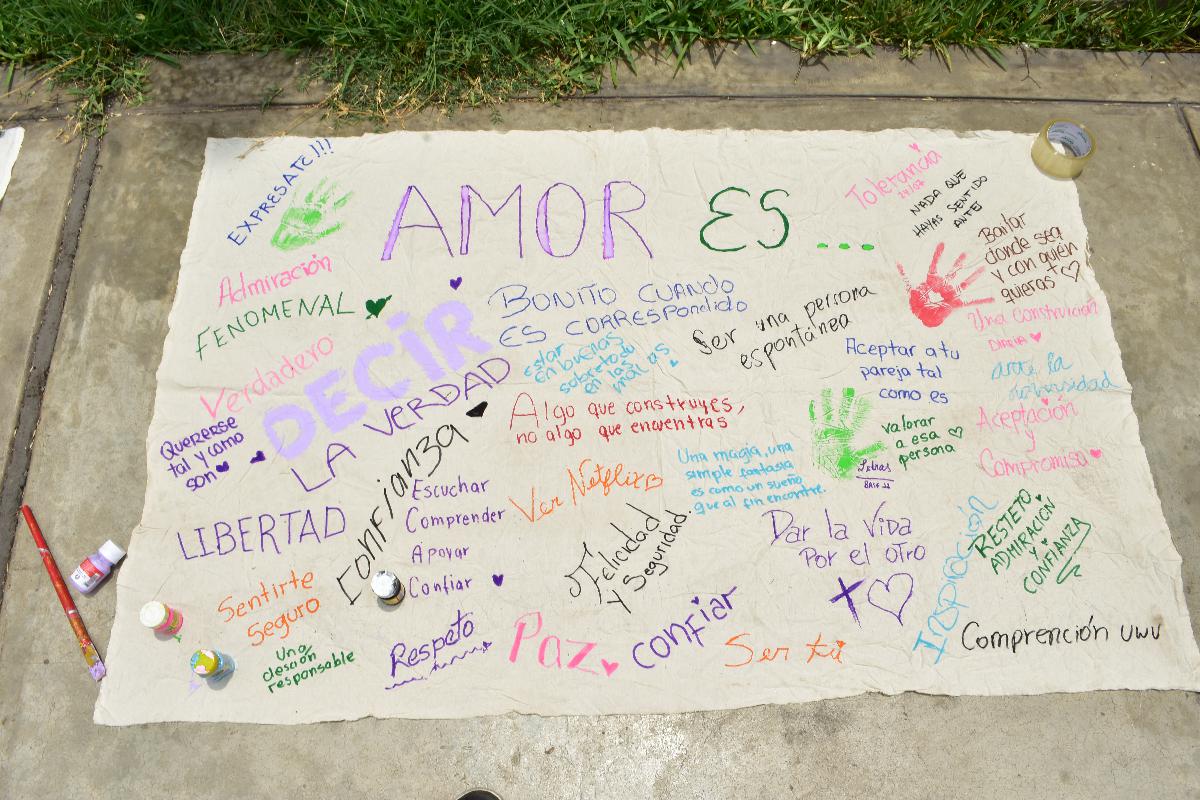 EXPRESATE!!!
AMOR ES...
Tolerancia
NADA QUE
HAYAS SENTIDO
ANTES
Bailar
donde sea
y con quién
quieras +
Admiración
FENOMENAL
Verdadero
DECIR
LA VERDAD
BONITO CUANDO
ES CORRESPONDIDO
Estar
en buenas
sobretodo
en las
malas
Ser una persona
espontánea
Aceptar a tu
pareja tal
como es
Una construcción
DIARIA
ante la
adversidad
Aceptación
y
Compromiso
Quererse
tal y como
son
CONFIANZA
Algo que construyes,
no algo que encuentras
valorar
a esa
persona
Letras
BASE 22
Una magia, una
simple fantasía
es como un sueño
que al fin encontre.
Ver Netflix
LIBERTAD
Escuchar
Comprender
Apoyar
Confiar
Felicidad
y Seguridad.
Dar la Vida
Por el otro
INSPIRACIÓN
RESTETO
ADMIRACIÓN
Y
CONFIANZA
Sentirte
Seguro
Una
desción
responsable
Respeto
Paz
confiar
Ser tú
Comprención uwu